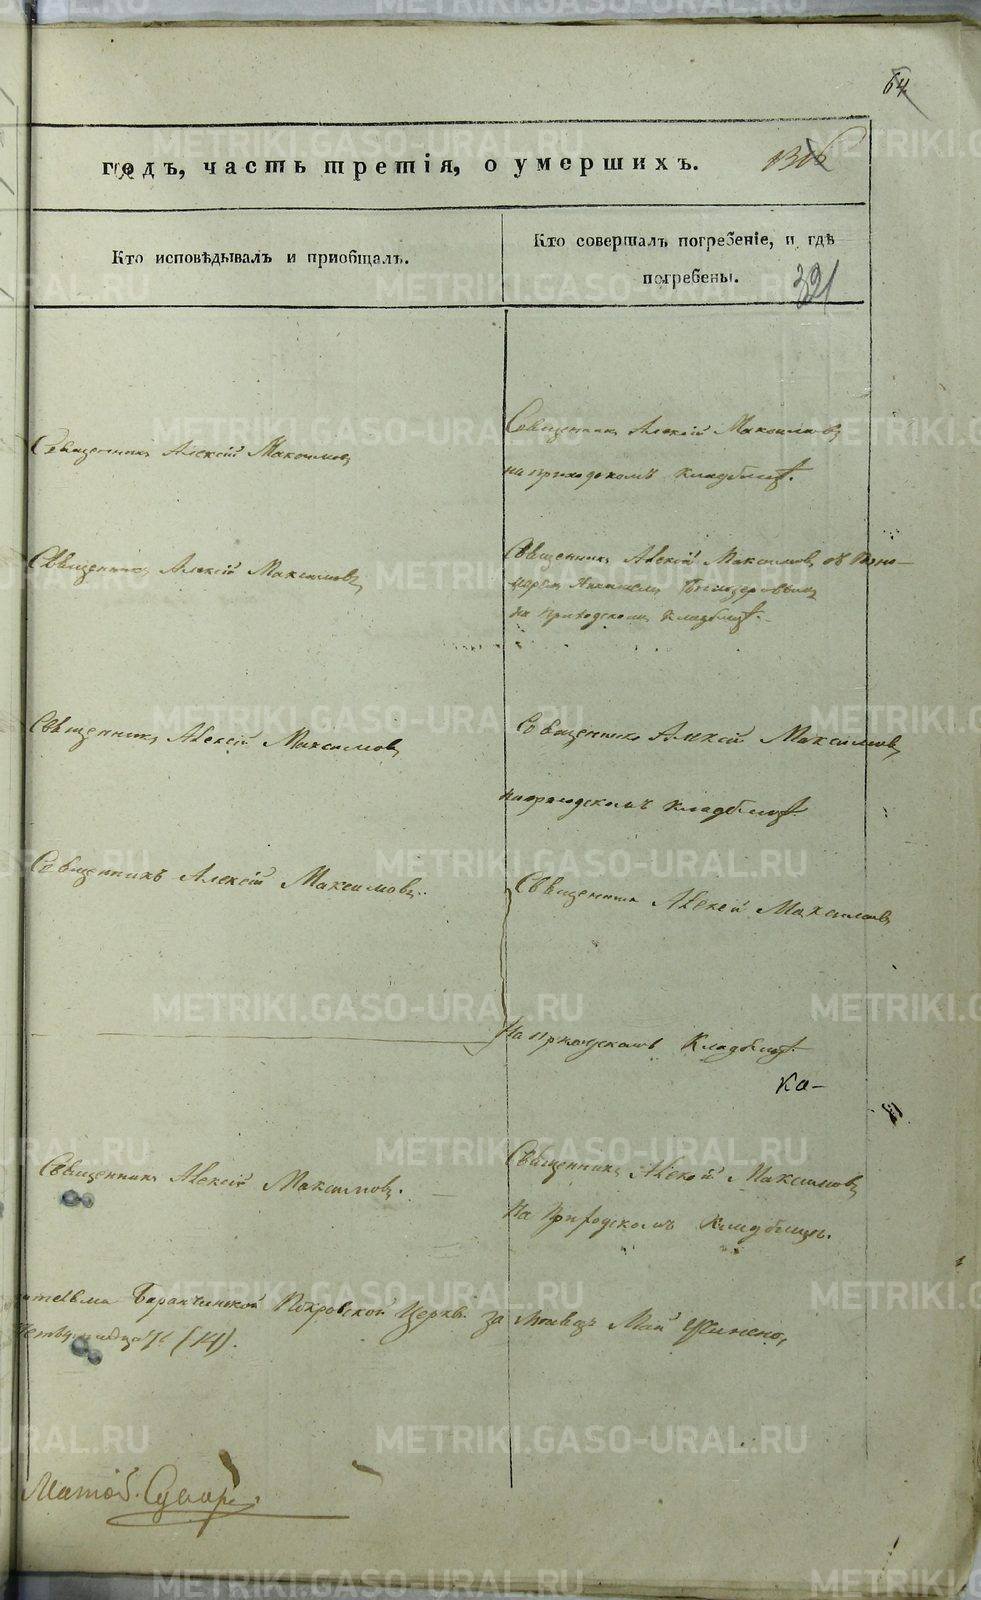 64
годъ, часть третія, о умершихъ.
Кто исповѣдывалъ и пріобщалъ.
Кто совершалъ погребеніе, и гдѣ
погребены.
321
Священникъ Алексій Максимовъ
Священникъ Алексій Максимовъ
на приходскомъ кладбищѣ.
Священникъ Алексій Максимовъ
Священникъ Алексій Максимовъ съ Поно-
маремъ
на приходскомъ кладбищѣ.
Священникъ Алексій Максимовъ
Священникъ Алексій Максимовъ
на приходскомъ кладбищѣ.
Священникъ Алексій Максимовъ.
Священникъ Алексій Максимовъ
На приходскомъ кладбищѣ.
ка-
Священникъ Алексій Максимовъ.
Священникъ Алексій Максимовъ
На приходскомъ кладбищѣ.
Баранчинской Покровской Церкви за Мѣсяцъ Май
(14).
METRIKI.GASO-URAL.RU